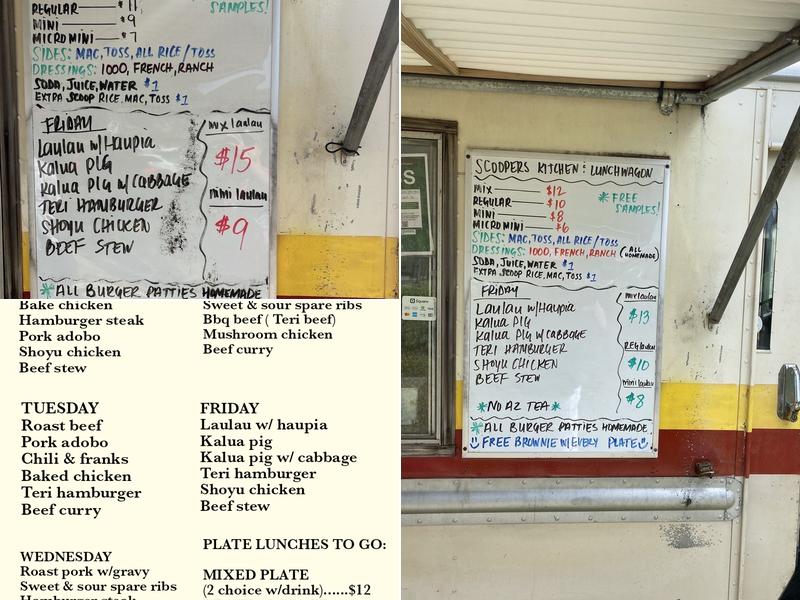 REGULAR $11
MINI $9
MICRO MINI $7
SAMPLES!
SIDES: MAC, TOSS, ALL RICE/TOSS
DRESSINGS: 1000, FRENCH, RANCH
SODA, JUICE, WATER $1
EXTRA SCOOP RICE, MAC, TOSS $1
FRIDAY
Laulau w/Haupia
Kalua PIG
Kalua PIG w/ CABBAGE
TERI HAMBURGER
SHOYU CHICKEN
BEEF STEW
mix laulau
$15
mini laulau
$9
*ALL BURGER PATTIES HOMEMADE
Bake chicken
Hamburger steak
Pork adobo
Shoyu chicken
Beef stew
Sweet & sour spare ribs
Bbq beef ( Teri beef)
Mushroom chicken
Beef curry
TUESDAY
Roast beef
Pork adobo
Chili & franks
Baked chicken
Teri hamburger
Beef curry
FRIDAY
Laulau w/ haupia
Kalua pig
Kalua pig w/ cabbage
Teri hamburger
Shoyu chicken
Beef stew
WEDNESDAY
Roast pork w/gravy
Sweet & sour spare ribs
Hamburger steak
PLATE LUNCHES TO GO:
MIXED PLATE
(2 choice w/drink)......$12
S
Square
SCOOPERS KITCHEN: LUNCHWAGON
MIX $12
REGULAR $10
MINI $8
MICRO MINI $6
*FREE
SAMPLES!
SIDES: MAC, TOSS, ALL RICE/TOSS
DRESSINGS: 1000, FRENCH, RANCH (ALL HOMEMADE)
SODA, JUICE, WATER $1
EXTRA SCOOP RICE, MAC, TOSS $1
FRIDAY
Laulau w/Haupia
Kalua PIG
Kalua PIG w/ CABBAGE
TERI HAMBURGER
SHOYU CHICKEN
BEEF STEW
*NO AZ TEA*
mix laulau
$13
REG laulau
$10
mini laulau
$8
*ALL BURGER PATTIES HOMEMADE
FREE BROWNIE W/EVERY PLATE